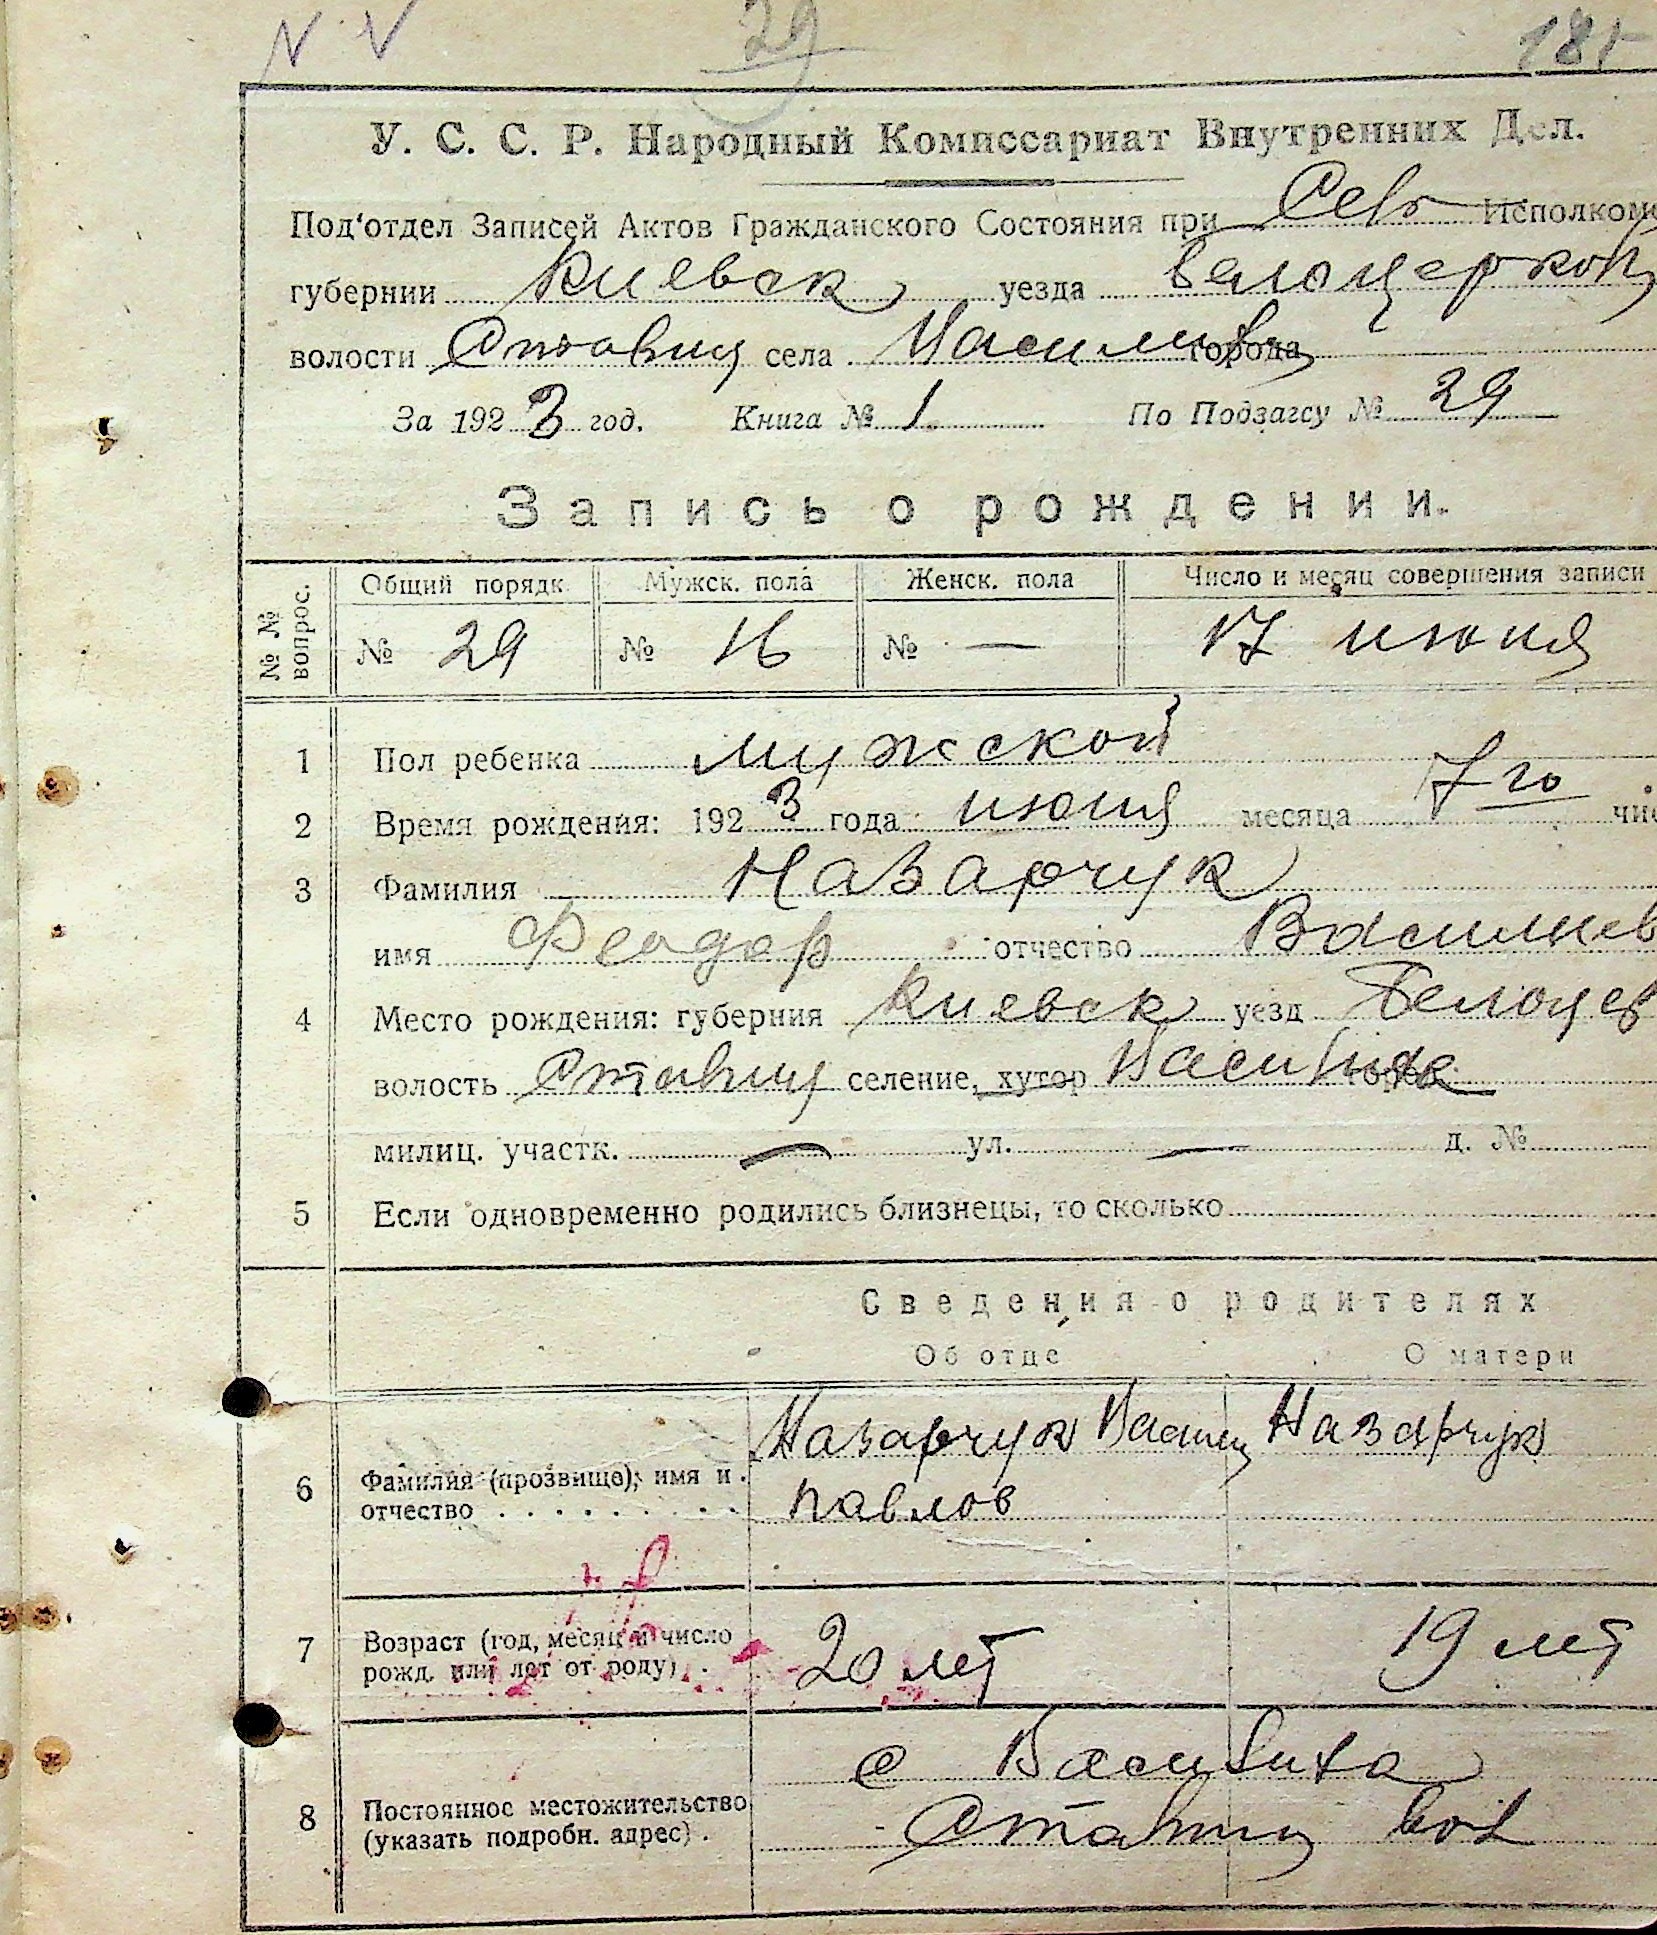 29
У. С. С. Р. Народный Комиссариат Внутренних Дел.
Под'отдел Записей Актов Гражданского Состояния при Исполкоме
губернии Киевск уезда Белоцерков
волости Ставищ села города
За 1923 год. Книга № 1 По Подзагсу № 29
Запись о рождении.
№ № вопрос. Общий порядк. Мужск. пола Женск. пола Число и месяц совершения записи
№ 29 № 16 № — 17 июня
1 Пол ребенка мужской
2 Время рождения: 1923 года июня месяца 7го чис
3 Фамилия Назарчук
имя Феодор отчество Васильев
4 Место рождения: губерния Киевск уезд Белоцер
волость Ставищ селение, хутор
милиц. участк. — ул. — д. №
5 Если одновременно родились близнецы, то сколько
Сведения о родителях
Об отце О матери
Назарчук Назарчук
6 Фамилия (прозвище), имя и
отчество Павлов
7 Возраст (год, месяц и число
рожд. или лет от роду) 20 лет 19 лет
с Василиха
8 Постоянное местожительство
(указать подробн. адрес). Ставищ вол